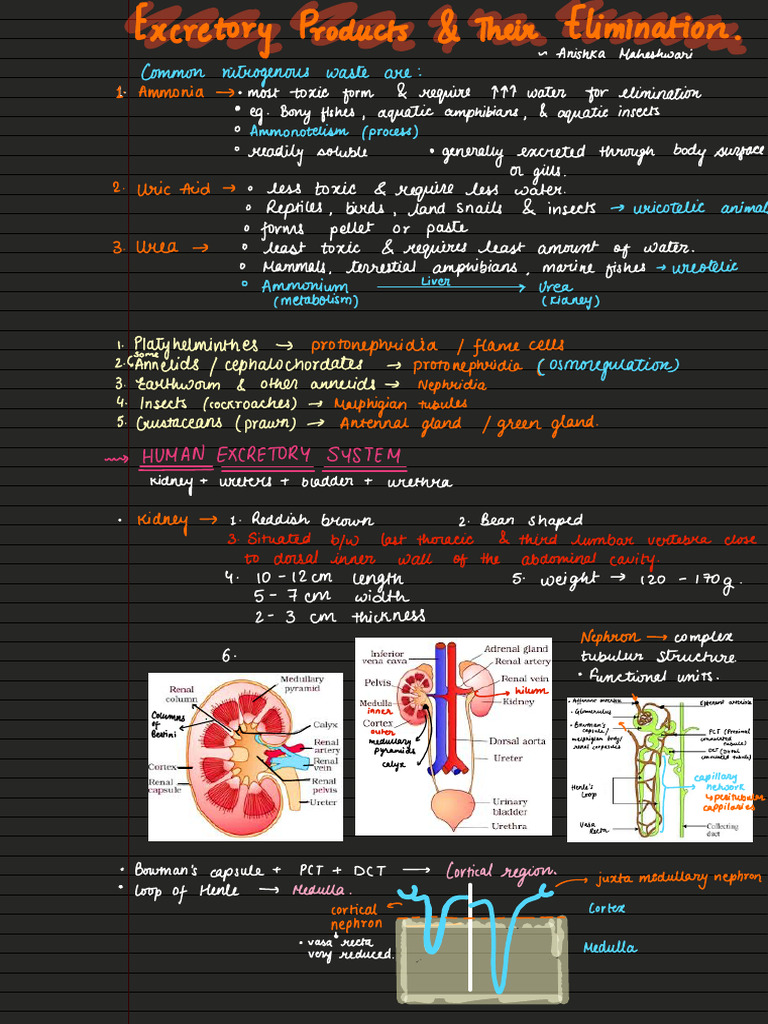 Excretory Products & Their Elimination.
~ Anishka Maheshwari
Common nitrogenous waste are:
1. Ammonia → • most toxic form & require ↑↑↑ water for elimination
• eg. Bony fishes, aquatic amphibians, & aquatic insects
• Ammonotelism (process)
• readily soluble • generally excreted through body surface
or gills.
2. Uric Aid → • less toxic & require less water.
• Reptiles, birds, land snails & insects → uricotelic animal
• forms pellet or paste
3. Urea → • least toxic & requires least amount of water.
• Mammals, terrestial amphibians, marine fishes → ureotelic
• Ammonium Liver → Urea
(metabolism) (kidney)
1. Platyhelminthes → protonephridia / flame cells
2. (some Annelids / cephalochordates → protonephridia (osmoregulation)
3. Earthworm & other annelids → Nephridia
4. Insects (cockroaches) → Malphigian tubules
5. Crustaceans (prawn) → Antennal gland / green gland.
⇝ HUMAN EXCRETORY SYSTEM
kidney + ureters + bladder + urethra
• Kidney → 1. Reddish brown 2. Bean shaped
3. Situated b/w last thoracic & third lumbar vertebra close
to dorsal inner wall of the abdominal cavity.
4. 10 - 12 cm length 5. weight → 120 - 170 g.
5 - 7 cm width
2 - 3 cm thickness
6.
Medullary
pyramid
Renal
column
Columns
of
Bertini
Calyx
Renal
artery
Renal
vein
Cortex
Renal
capsule
Renal
pelvis
Ureter
Inferior
vena cava
Adrenal gland
Renal artery
Renal vein
hilum
Pelvis
Kidney
Medulla
inner
Cortex
outer
medullary
pyramids
calyx
Dorsal aorta
Ureter
Urinary
bladder
Urethra
Nephron → complex
tubulur structure
• functional units.
Afferent arteriole
Efferent arteriole
• Glomerulus
• Bowman's
capsule /
malpighian body/
renal corpuscles
PCT (Proximal
convoluted
tubule)
DCT (Distal
convoluted tubule)
capillary
network
↳ peritubular
cappilaries
Henle's
Loop
Vasa
Recta
Collecting
duct
• Bowman's capsule + PCT + DCT → Cortical region.
• loop of Henle → Medulla.
juxta medullary nephron
cortical
nephron
Cortex
• vasa recta
very reduced.
Medulla